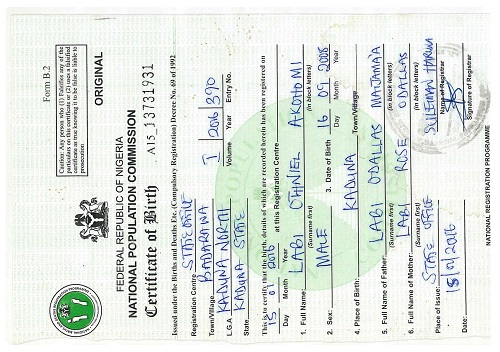 Form B.2
Caution: Any person who (1) Falsifies any of the
particulars on this certificate or (2) uses a falsified
certificate as true knowing it to be false is liable to
prosecution.
ORIGINAL
FEDERAL REPUBLIC OF NIGERIA
NATIONAL POPULATION COMMISSION
Certificate of Birth A15 13731931
Issued under the Births and Deaths Etc. (Compulsory Registration) Decree No. 69 of 1992
Registration Centre STATE OFFICE
Town/Village BADARAWA
L.G.A KADUNA NORTH Volume I Year 2016 Entry No. 390
State KADUNA STATE
This is to certify that the birth, details of which are recorded herein has been registered on
15 09 2016 at this Registration Centre
Day Month Year
1. Full Name: LABI OTHNIEL AKOHOMI
(Surname first) (in block letters)
2. Sex: MALE 3. Date of Birth 16 09 2008
Day Month Year
4. Place of Birth: KADUNA Town/Village
5. Full Name of Father: LABI ODALLAS MAJAMAA
(Surname first) (in block letters)
6. Full Name of Mother: LABI ROSE ODALLAS
(Surname first) (in block letters)
Place of Issue: STATE OFFICE SULEIMAN HARUNA
Name of Registrar
Date: 2016
Signature of Registrar
NATIONAL REGISTRATION PROGRAMME